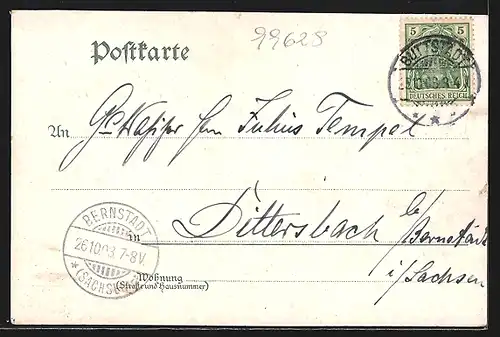 99628
Postkarte
5 5
DEUTSCHES REICH
BUTTSTÄDT
An Herrn Julius Tempel
in Dittersbach
b/ Bernstadt
i/Sachsen
BERNSTADT
26 10 03 7-8V.
* (SACHSEN)
Wohnung
(Straße und Hausnummer)